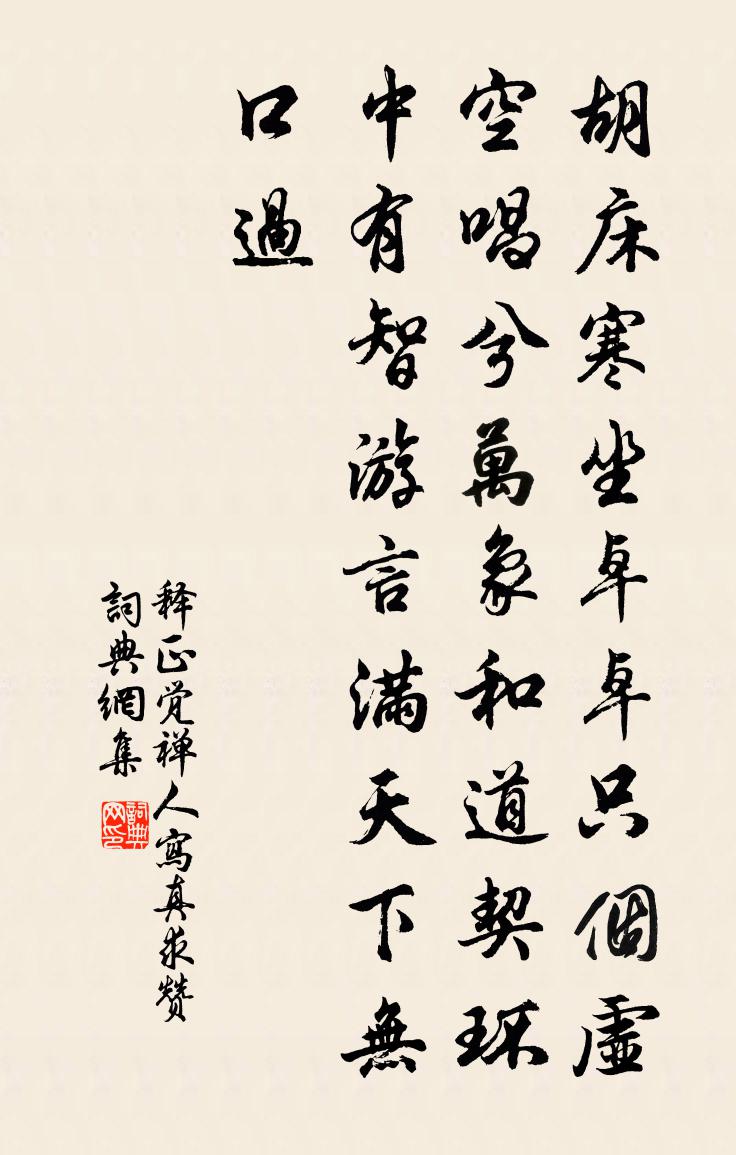 胡床寒坐卓卓只個虛
空唱兮萬象和道契環
中有智游言滿天下無
口過
释正觉禅人寫真求赞
詞典網集
詞典网印